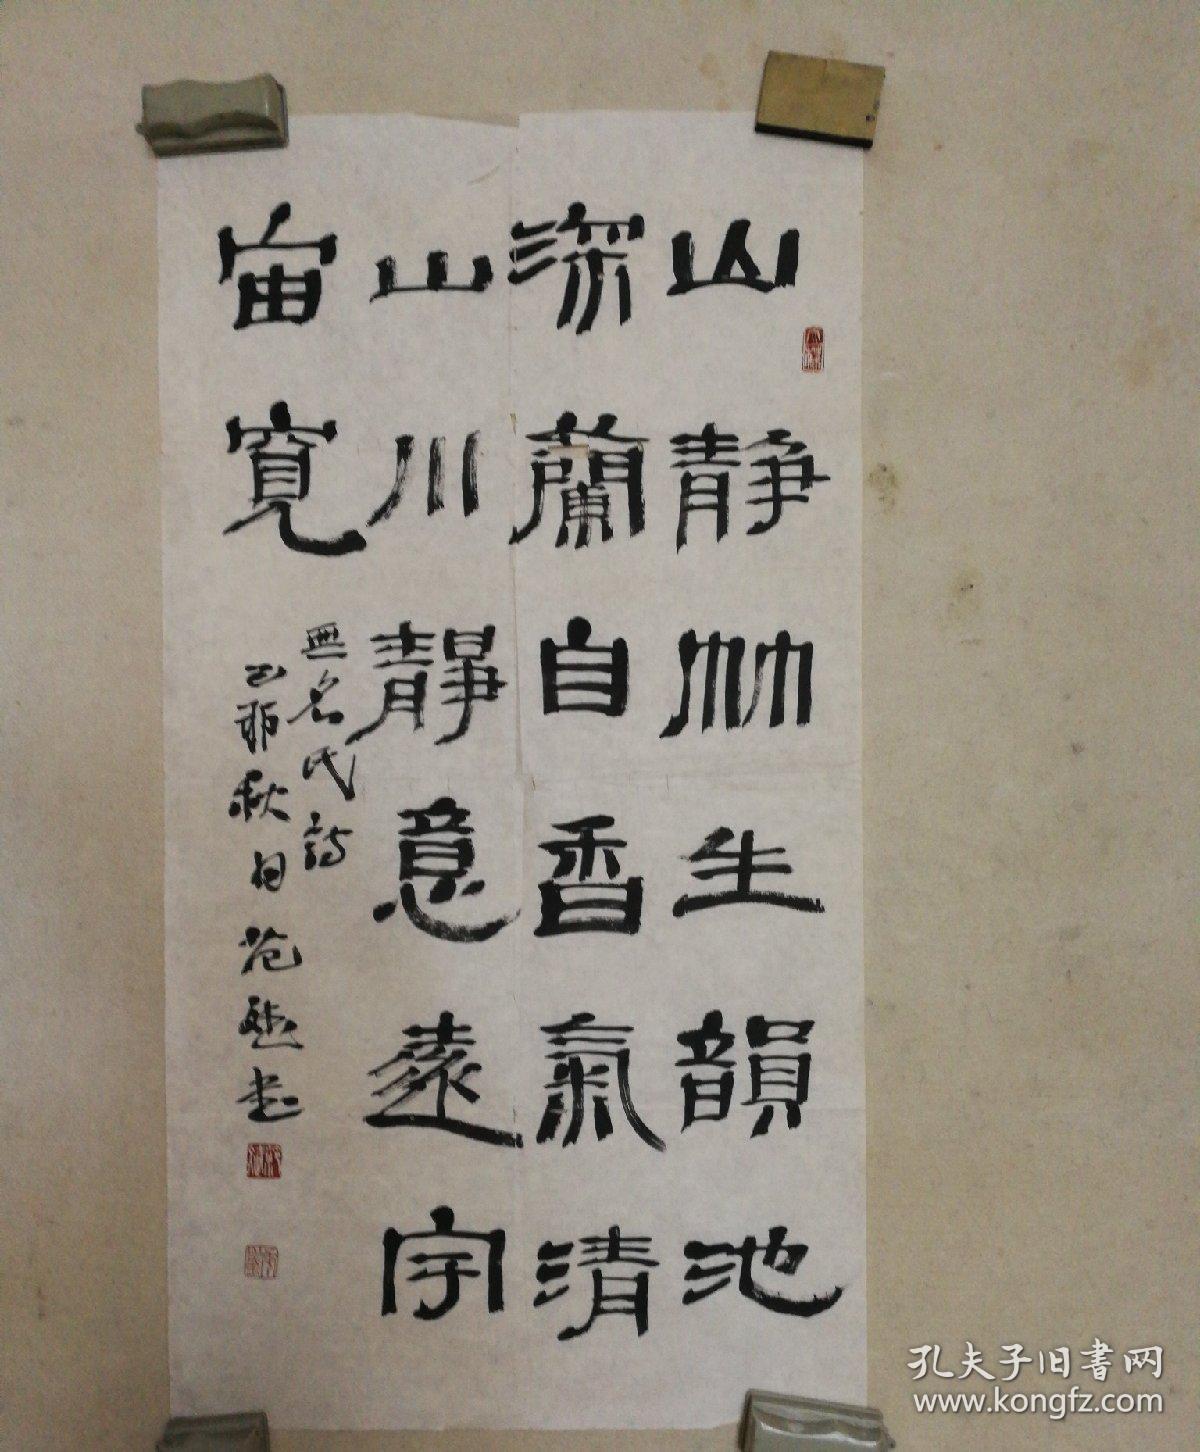 山静竹生韻池
深蘭自香氣清
山川靜意遠宇
宙寬
無名氏詩
乙卯秋日范
书
孔夫子旧書网
www.kongfz.com